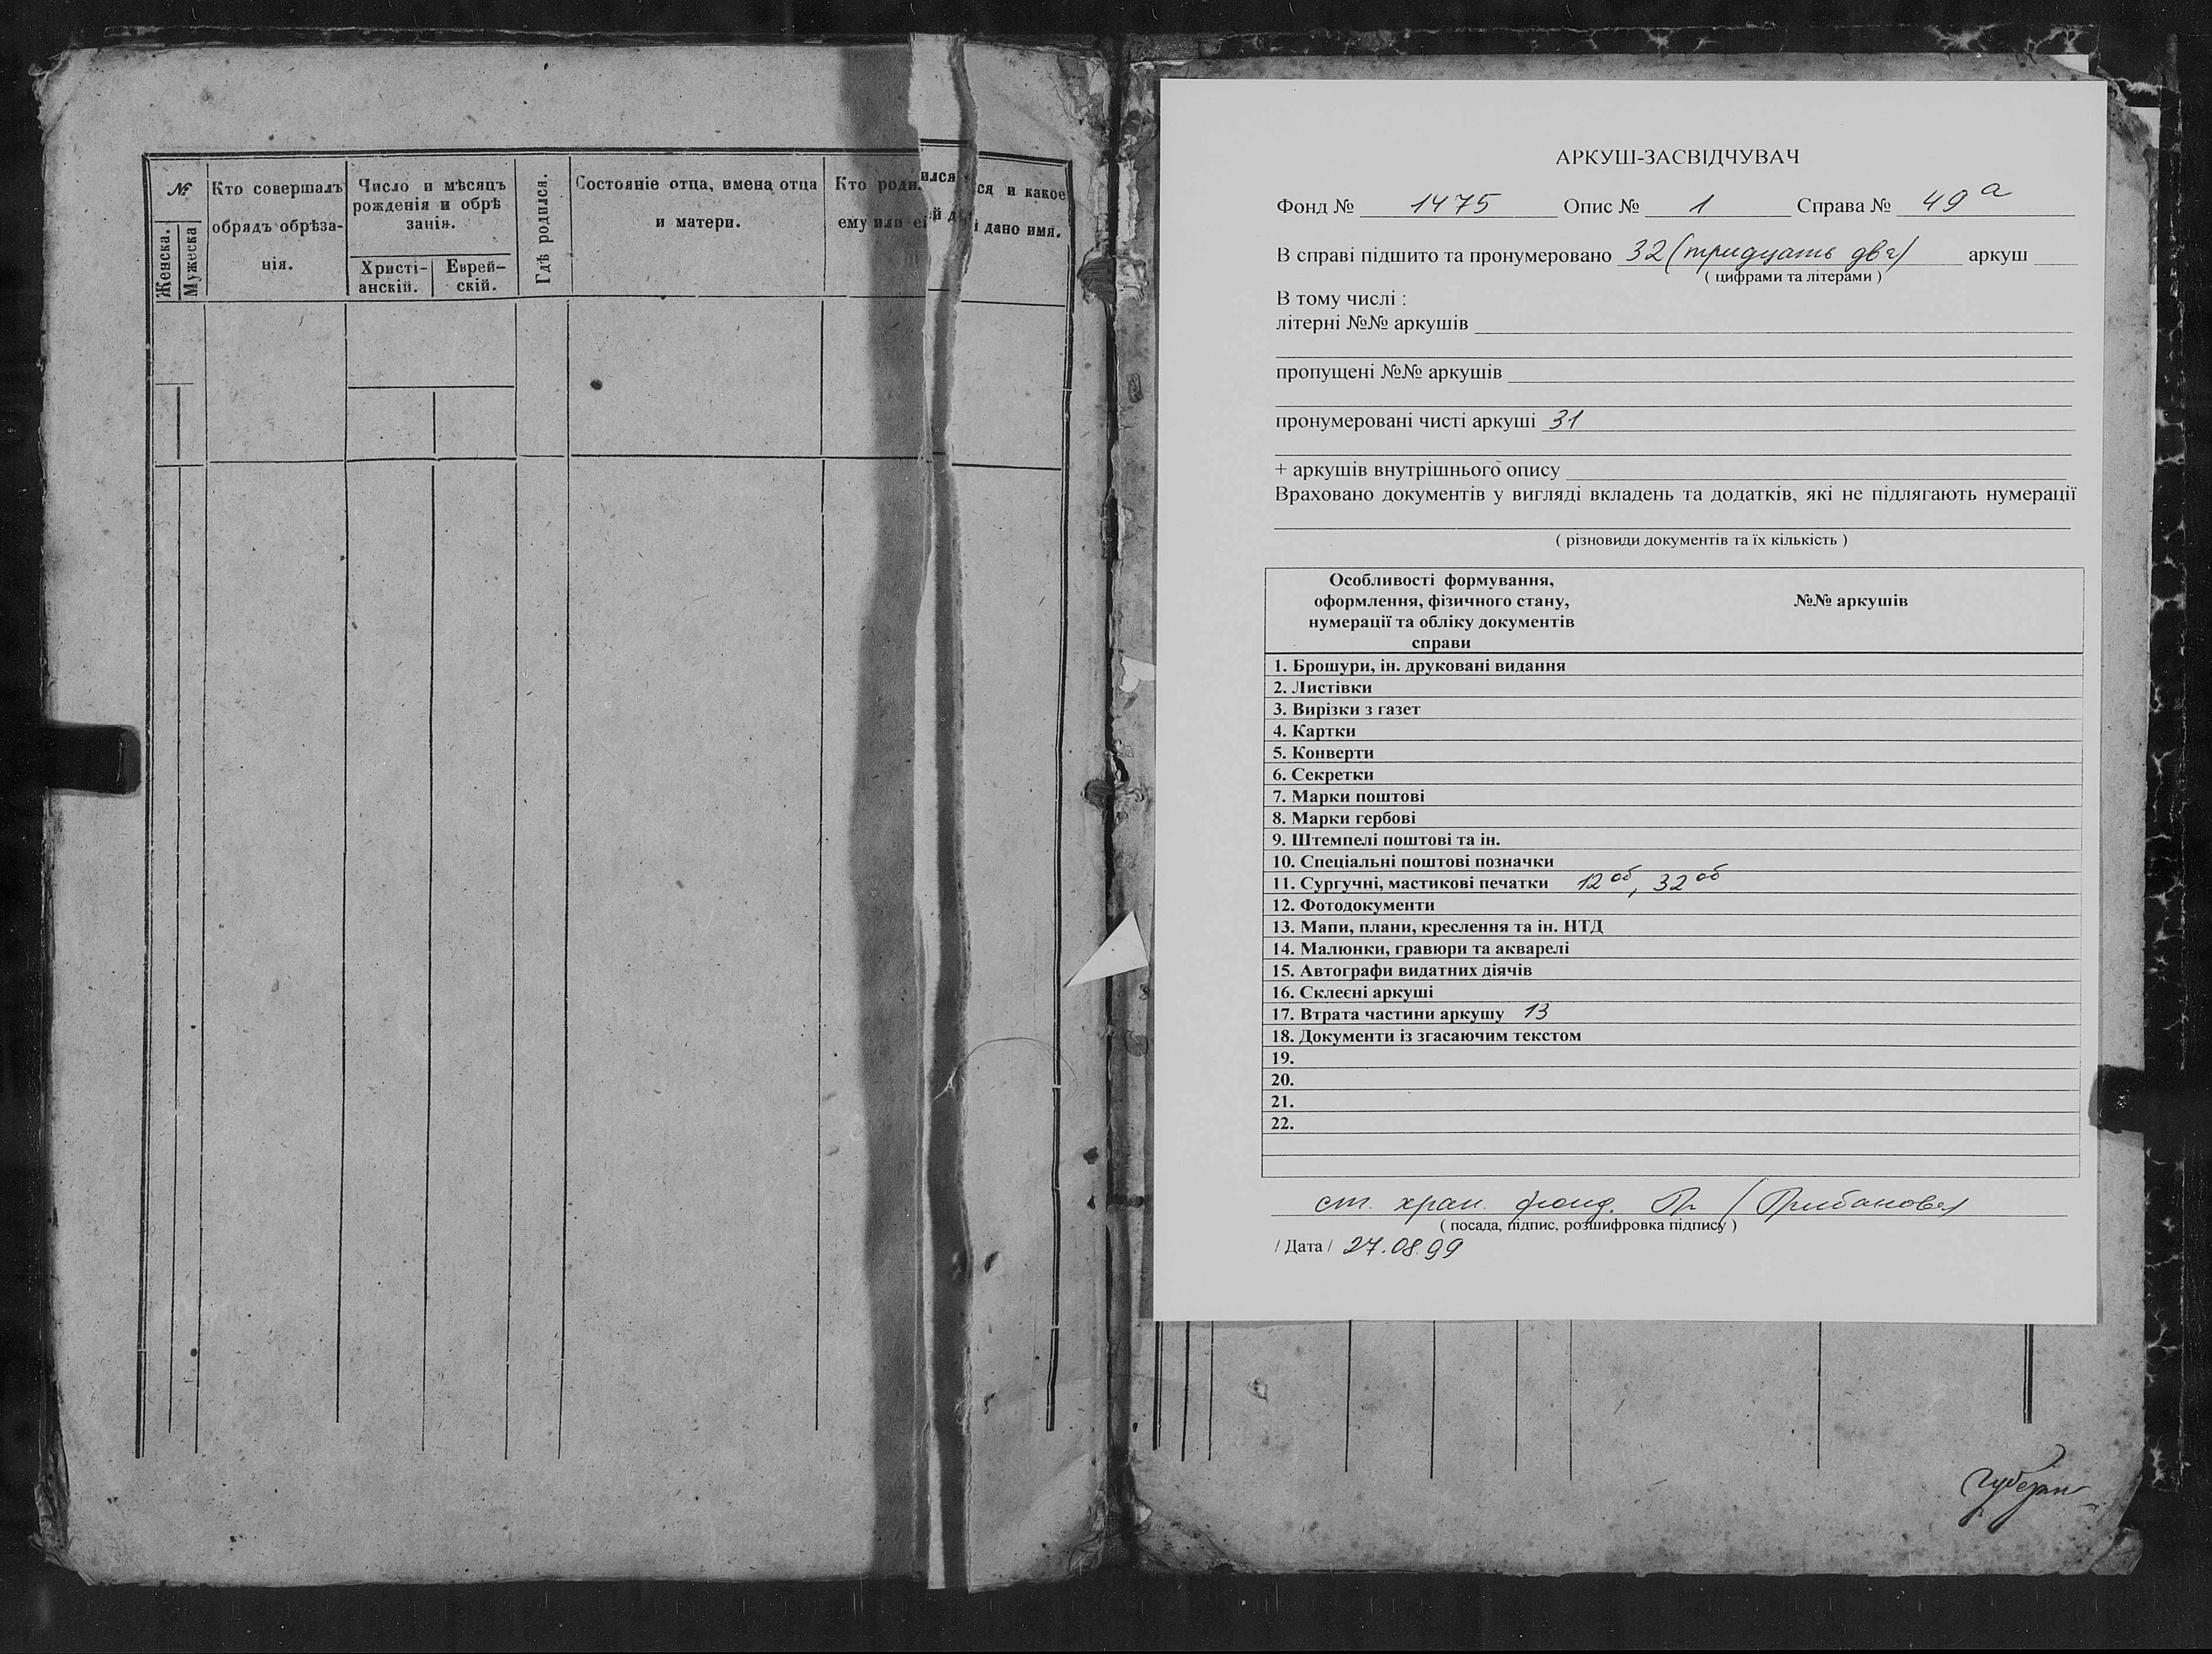 №
Женска.
Мужеска
Кто совершалъ
обрядъ обрѣза-
нія.
Число и мѣсяцъ
рожденія и обрѣ
занія.
Христі-
анскій.
Еврей-
скій.
Гдѣ родился.
Состояніе отца, имена отца
и матери.
Кто роди
ился
ся и какое
ему или ей
й д
і дано имя.
АРКУШ-ЗАСВІДЧУВАЧ
Фонд № 1475 Опис № 1 Справа № 49 а
В справі підшито та пронумеровано 32 (тридцать два) аркуш
( цифрами та літерами )
В тому числі :
літерні №№ аркушів
пропущені №№ аркушів
пронумеровані чисті аркуші 31
+ аркушів внутрішнього опису
Враховано документів у вигляді вкладень та додатків, які не підлягають нумерації
( різновиди документів та їх кількість )
Особливості формування,
оформлення, фізичного стану,
нумерації та обліку документів
справи
№№ аркушів
1. Брошури, ін. друковані видання
2. Листівки
3. Вирізки з газет
4. Картки
5. Конверти
6. Секретки
7. Марки поштові
8. Марки гербові
9. Штемпелі поштові та ін.
10. Спеціальні поштові позначки
11. Сургучні, мастикові печатки 12 об, 32 об
12. Фотодокументи
13. Мапи, плани, креслення та ін. НТД
14. Малюнки, гравюри та акварелі
15. Автографи видатних діячів
16. Склеєні аркуші
17. Втрата частини аркушу 13
18. Документи із згасаючим текстом
19.
20.
21.
22.
ст. хран. фонд.
( посада, підпис, розшифровка підпису )
/ Дата / 27.08.99